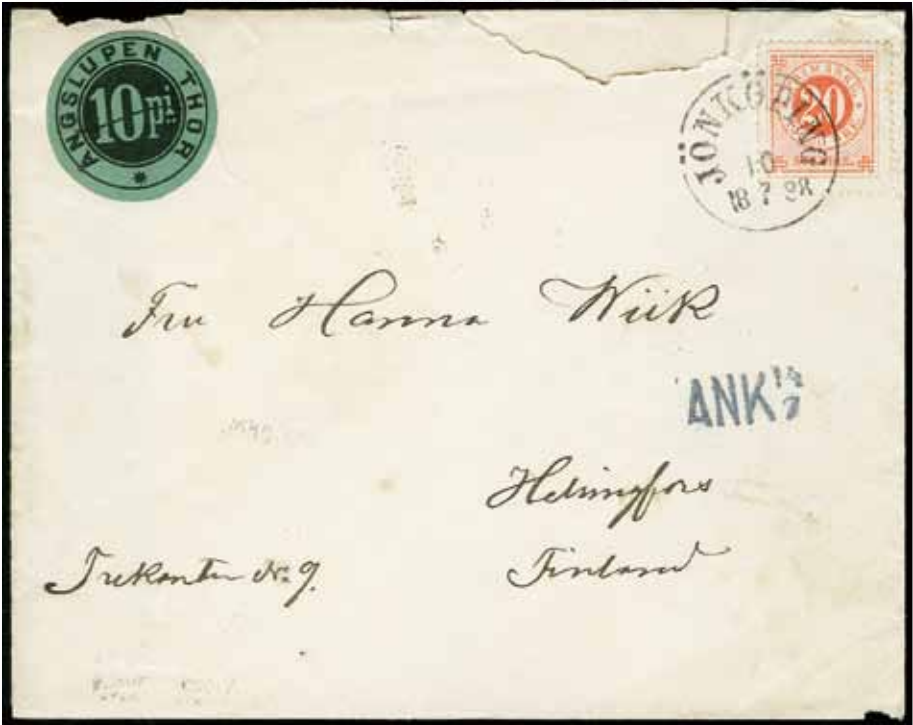 ANGSLUPEN THOR
10 pi
20
JÖNKÖPING
10
18 7 98
Fru Hanna Wiik
ANK 14/7
Helsingfors
Finland
Trekanten No 9.